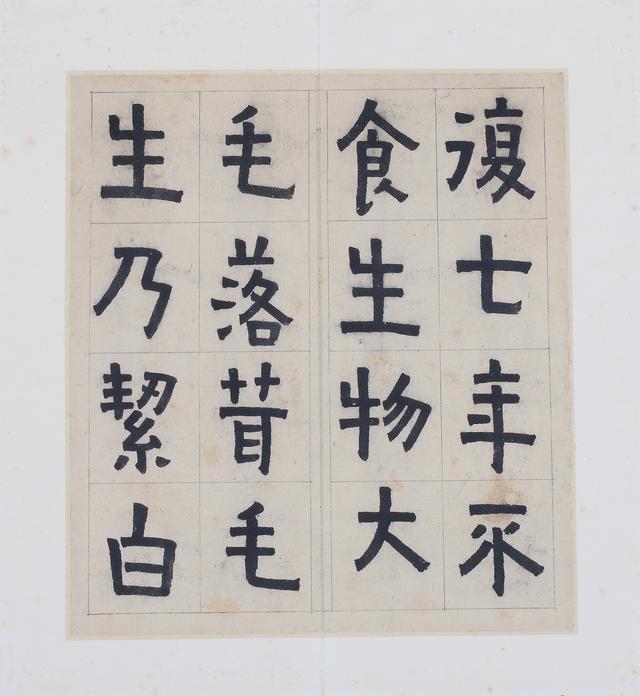 復七年不
食生物大
毛落茸毛
生乃絜白